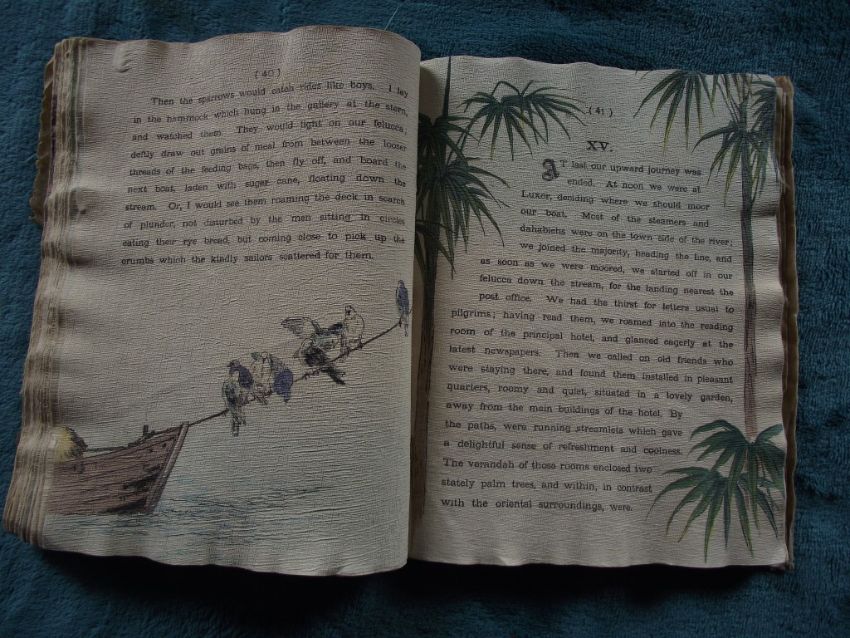 ( 40 )
Then the sparrows would catch rides like boys. I lay
in the hammock which hung in the gallery at the stern,
and watched them. They would light on our felucca,
deftly draw out grains of meal from between the looser
threads of the feeding bags, then fly off, and board the
next boat, laden with sugar cane, floating down the
stream. Or, I would see them roaming the deck in search
of plunder, not disturbed by the men sitting in circles
eating their rye bread, but coming close to pick up the
crumbs which the kindly sailors scattered for them.
( 41 )
XV.
AT last our upward journey was
ended. At noon we were at
Luxor, deciding where we should moor
our boat. Most of the steamers and
dahabiehs were on the town side of the river;
we joined the majority, heading the line, and
as soon as we were moored, we started off in our
felucca down the stream, for the landing nearest the
post office. We had the thirst for letters usual to
pilgrims; having read them, we roamed into the reading
room of the principal hotel, and glanced eagerly at the
latest newspapers. Then we called on old friends who
were staying there, and found them installed in pleasant
quarters, roomy and quiet, situated in a lovely garden,
away from the main buildings of the hotel. By
the paths, were running streamlets which gave
a delightful sense of refreshment and coolness.
The verandah of those rooms enclosed two
stately palm trees, and within, in contrast
with the oriental surroundings, were.